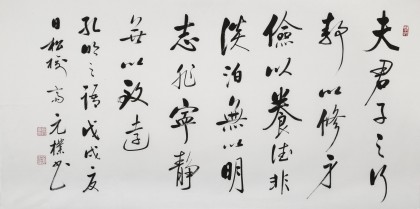 夫君子之行
静以修身
俭以养德非
淡泊無以明
志非寧静
無以致遠
孔明之語戊戌夏
日松樹齋元樸书